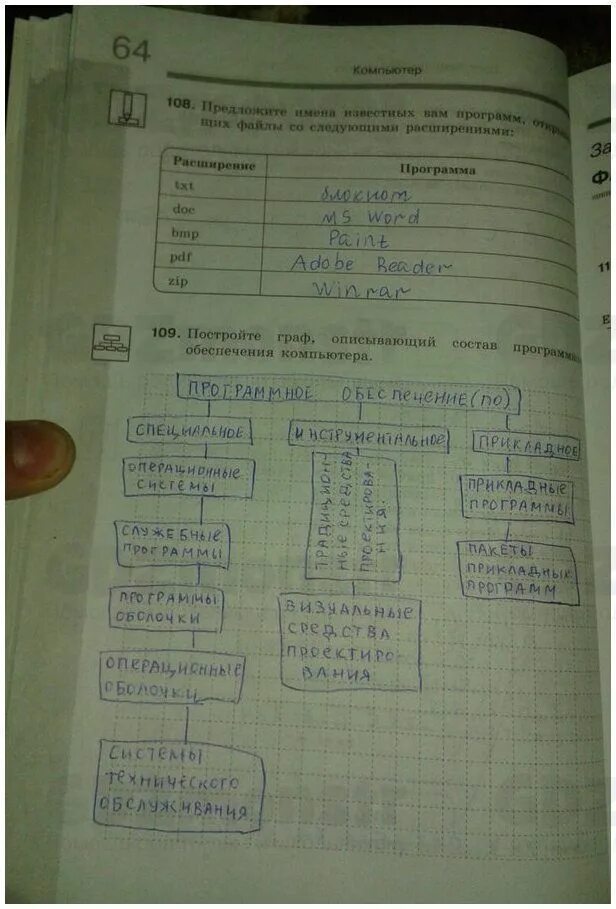 64
Компьютер
108. Предложите имена известных вам программ,
щих файлы со следующими расширениями:
Расширение Программа
txt блокнот
doc MS Word
bmp Paint
pdf Adobe Reader
zip Winrar
109. Постройте граф, описывающий состав
обеспечения компьютера.
ПРОГРАММНОЕ ОБЕСПЕЧЕНИЕ (ПО)
СПЕЦИАЛЬНОЕ
ОПЕРАЦИОННЫЕ
СИСТЕМЫ
СЛУЖЕБНЫЕ
ПРОГРАММЫ
ПРОГРАММЫ
ОБОЛОЧКИ
ОПЕРАЦИОННЫЕ
ОБОЛОЧКИ
СИСТЕМЫ
ТЕХНИЧЕСКОГО
ОБСЛУЖИВАНИЯ
ИНСТРУМЕНТАЛЬНОЕ
ТРАДИЦИОН-
НЫЕ СРЕДСТВА
ПРОЕКТИРОВА-
НИЯ
ВИЗУАЛЬНЫЕ
СРЕДСТВА
ПРОЕКТИРО-
ВАНИЯ
ПРИКЛАДНОЕ
ПРИКЛАДНЫЕ
ПРОГРАММЫ
ПАКЕТЫ
ПРИКЛАДНЫХ
ПРОГРАММ
За
Ф
11
Е